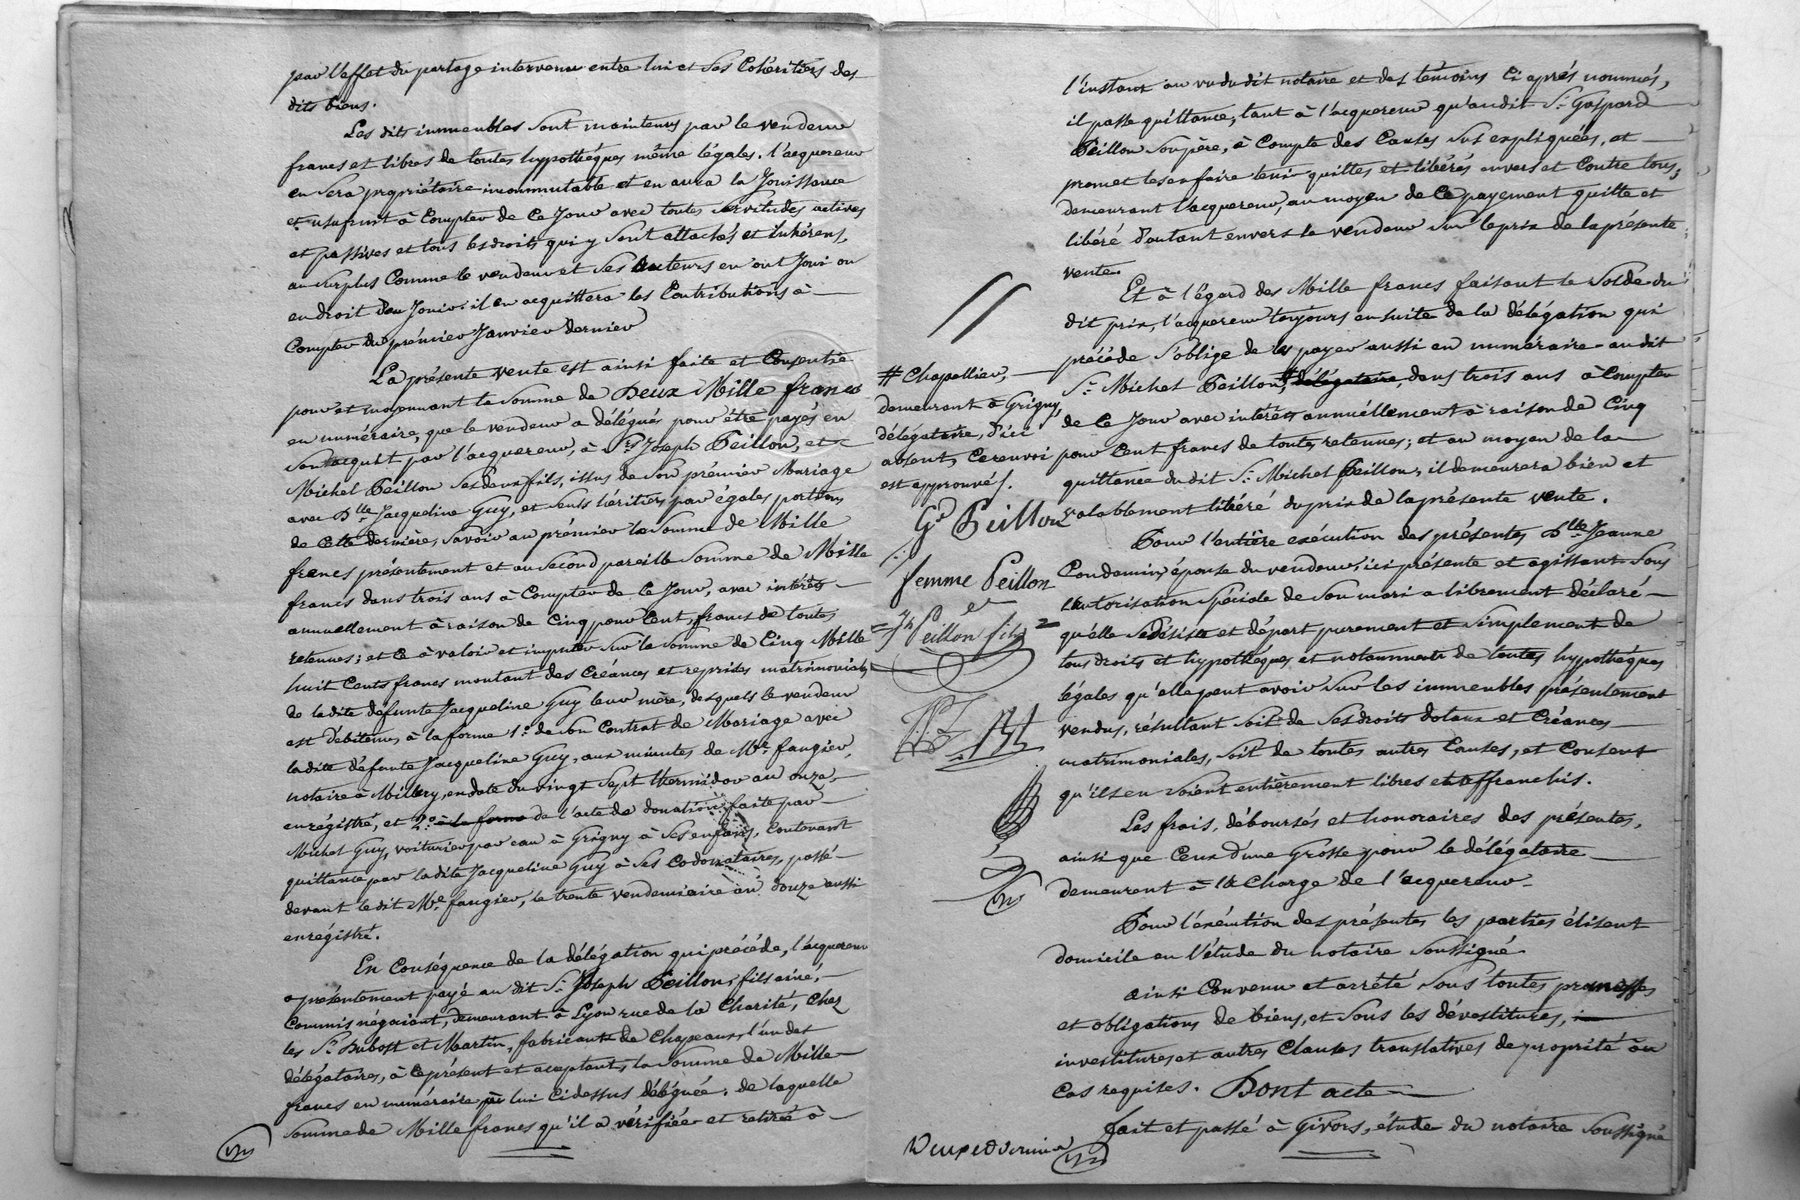 par l'effet du partage intervenu entre lui et ses Cohéritiers des
dits biens.
Les dits immeubles sont maintenus par le vendeur
francs et libres de toutes hypothéques même légales. l'acquereur
en sera propriétaire incommutable et en aura la Jouissance
et usufruit à Compter de Ce Jour avec toutes servitudes actives
et passives et tous les droits qui y sont attachés et inhérens,
au surplus Comme le vendeur et ses auteurs en ont Joui ou
eu droit d'en Jouir. il en acquittera les Contributions à
Compter du prémier Janvier dernier
La présente vente est ainsi faite et Consentie
pour et moyennant la somme de Deux Mille francs
en numéraire, que le vendeur a délégués pour être payés en
son acquit par l'acquereur, à Srs Joseph Peillon, et
Michel Peillon ses deux fils, issus de son prémier Mariage
avec Dlle Jacqueline Guy, et seuls héritiers par égales portions
de Cette dernière, savoir au prémier la somme de Mille
francs présentement et au second pareille somme de Mille
francs dans trois ans à Compter de Ce Jour, avec intérêts
annuellement à raison de Cinq pour Cent, francs de toutes
retenues; et Ce à valoir et imputer sur la somme de Cinq Mille
huit Cents francs montant des Créances et reprises matrimoniales
de la dite défunte Jacqueline Guy leur mère, desquels le vendeur
est débiteur, à la forme 1° de son Contrat de Mariage avec
la dite défunte Jacqueline Guy, aux minutes de Me fangier,
notaire à Millery, en date du vingt sept thermidor an onze,
enrégistré, et 2° à la forme de l'acte de donation faite par
Michel Guy, voiturier par eau à Grigny à ses enfans, contenant
quittance par la dite Jacqueline Guy à ses Codonataires, passé
devant le dit Me fangier, le trente vendemiaire an douze aussi
enrégistré.
En Conséquence de la délégation qui précéde, l'acquereur
a présentement payé au dit Sr Joseph Peillon, fils ainé,
Commis négociant, demeurant à Lyon rue de la Charité, Chez
les Srs Dubost et Martin, fabricants de Chapeaux, l'un des
délégataires, à Ce présent et acceptant, la somme de Mille
francs en numéraire, à lui Cidessus déléguée. de laquelle
somme de Mille francs qu'il a vérifiée et retirée à
l'instant au vu du dit notaire et des témoins Ci après nommés,
il passe quittance, tant à l'acquereur qu'au dit Sr Gaspard
Peillon son père, à Compte des Causes sus expliquées, et
promet les en faire tenir quittes et libérés envers et Contre tous;
demeurant l'acquereur, au moyen de Ce payement quitte et
libéré d'autant envers le vendeur sur le prix de la présente
vente.
Et à l'égard des Mille francs faisant le solde du
dit prix, l'acquereur toujours en suite de la délégation qui
précéde s'oblige de les payer aussi en numéraire au dit
Sr Michel Peillon, # délégataire, dans trois ans à Compter
de Ce Jour avec intérêts annuéllement à raison de Cinq
pour Cent francs de toutes retenues; et au moyen de la
quittance du dit Sr Michel Peillon, il demeurera bien et
valablement libéré du prix de la présente vente.
# Chapellier,
demeurant à Grigny,
délégataire, d'ici
absent, Ce renvoi
est approuvé.
Gd Peillon
femme Peillon
et
Jh Peillon fils
Pour l'entière exécution des présentes, Dlle Jeanne
Condamin, épouse du vendeur, ici présente et agissant sous
l'autorisation spéciale de son mari a librement déclaré
qu'elle se désiste et départ purement et simplement de
tous droits et hypothéques et notamment de toutes hypothéques
légales qu'elle peut avoir sur les immeubles présentement
vendus, résultant soit de ses droits dotaux et Créances
matrimoniales, soit de toutes autres Causes, et Consent
qu'ils en soient entiérement libres et affranchis.
Les frais, déboursés et honoraires des présentes,
ainsi que Ceux d'une Grosse pour le délégataire
demeurent à la Charge de l'acquereur.
Pour l'exécution des présentes les parties élisent
domicile en l'étude du notaire soussigné
ainsi Convenu et arrêté sous toutes promesses
et obligations de biens, et sous les dévestitures,
investitures et autres Clauses translatives de proprieté au
Cas requises. Dont acte
fait et passé à Givors, étude du notaire soussigné